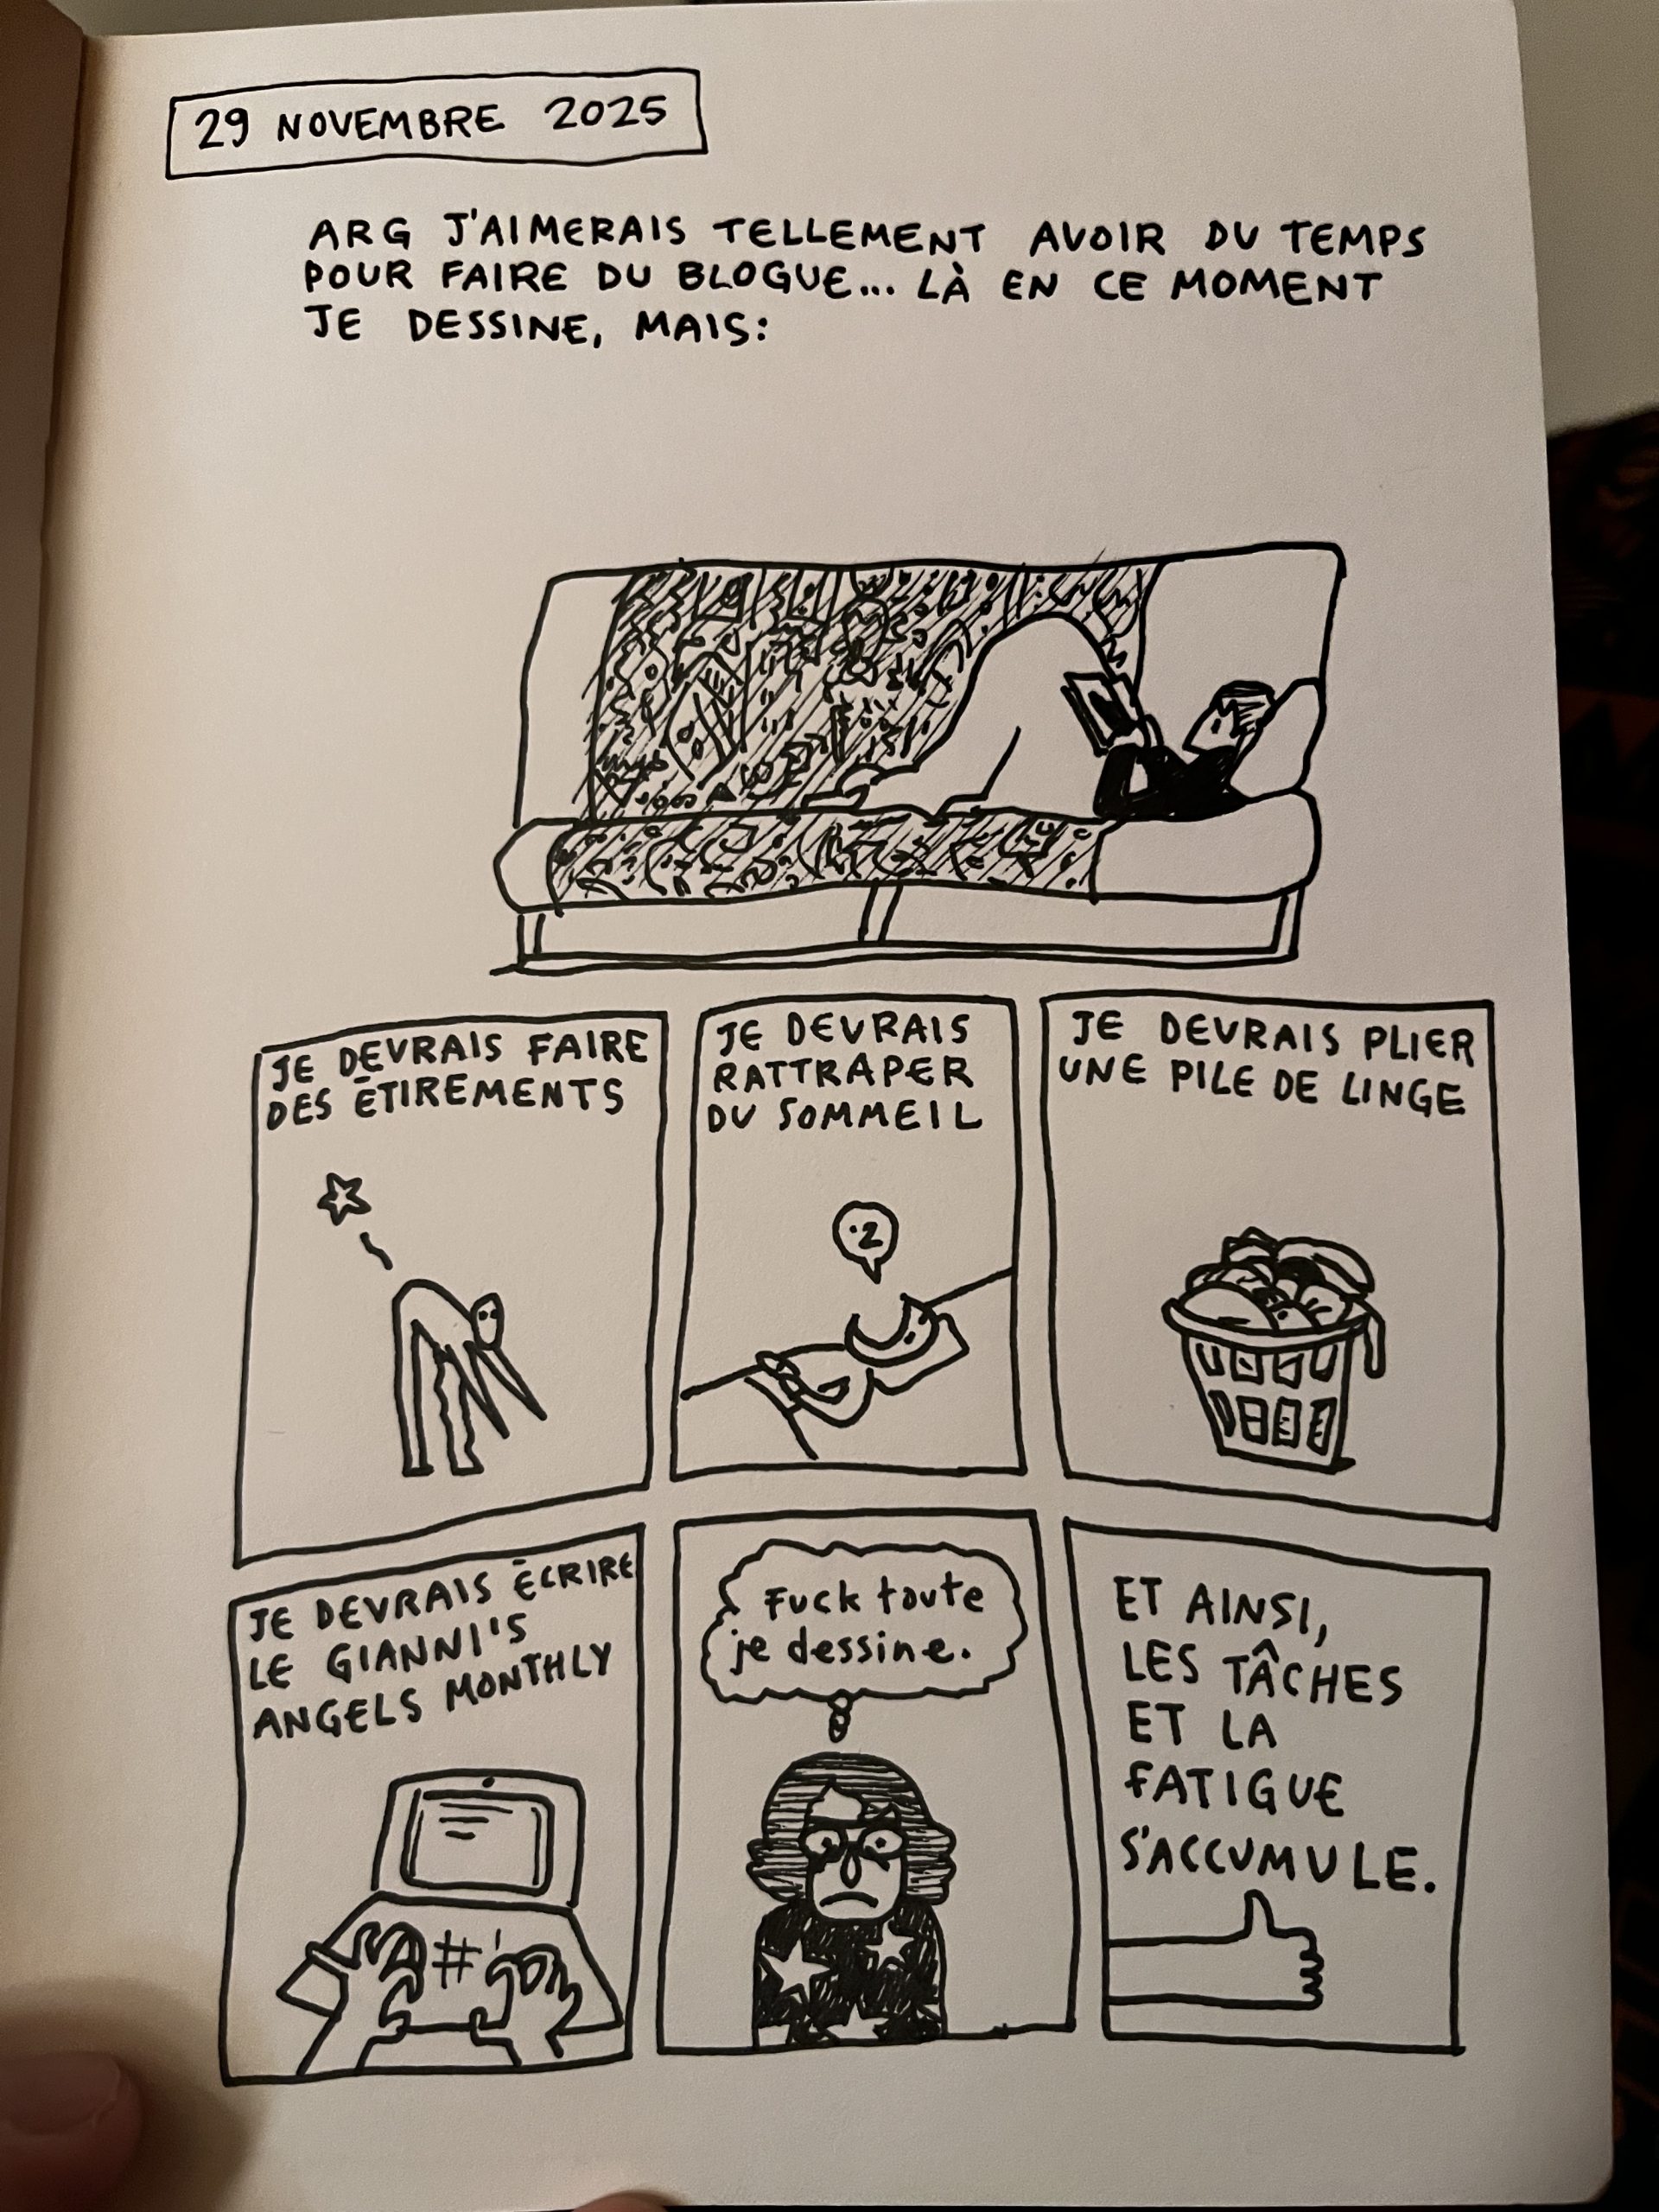 29 NOVEMBRE 2025
ARG J'AIMERAIS TELLEMENT AVOIR DU TEMPS
POUR FAIRE DU BLOGUE... LÀ EN CE MOMENT
JE DESSINE, MAIS:
JE DEVRAIS FAIRE
DES ÉTIREMENTS
JE DEVRAIS
RATTRAPER
DU SOMMEIL
·z
JE DEVRAIS PLIER
UNE PILE DE LINGE
JE DEVRAIS ÉCRIRE
LE GIANNI'S
ANGELS MONTHLY
#
Fuck toute
je dessine.
ET AINSI,
LES TÂCHES
ET LA
FATIGUE
S'ACCUMULE.